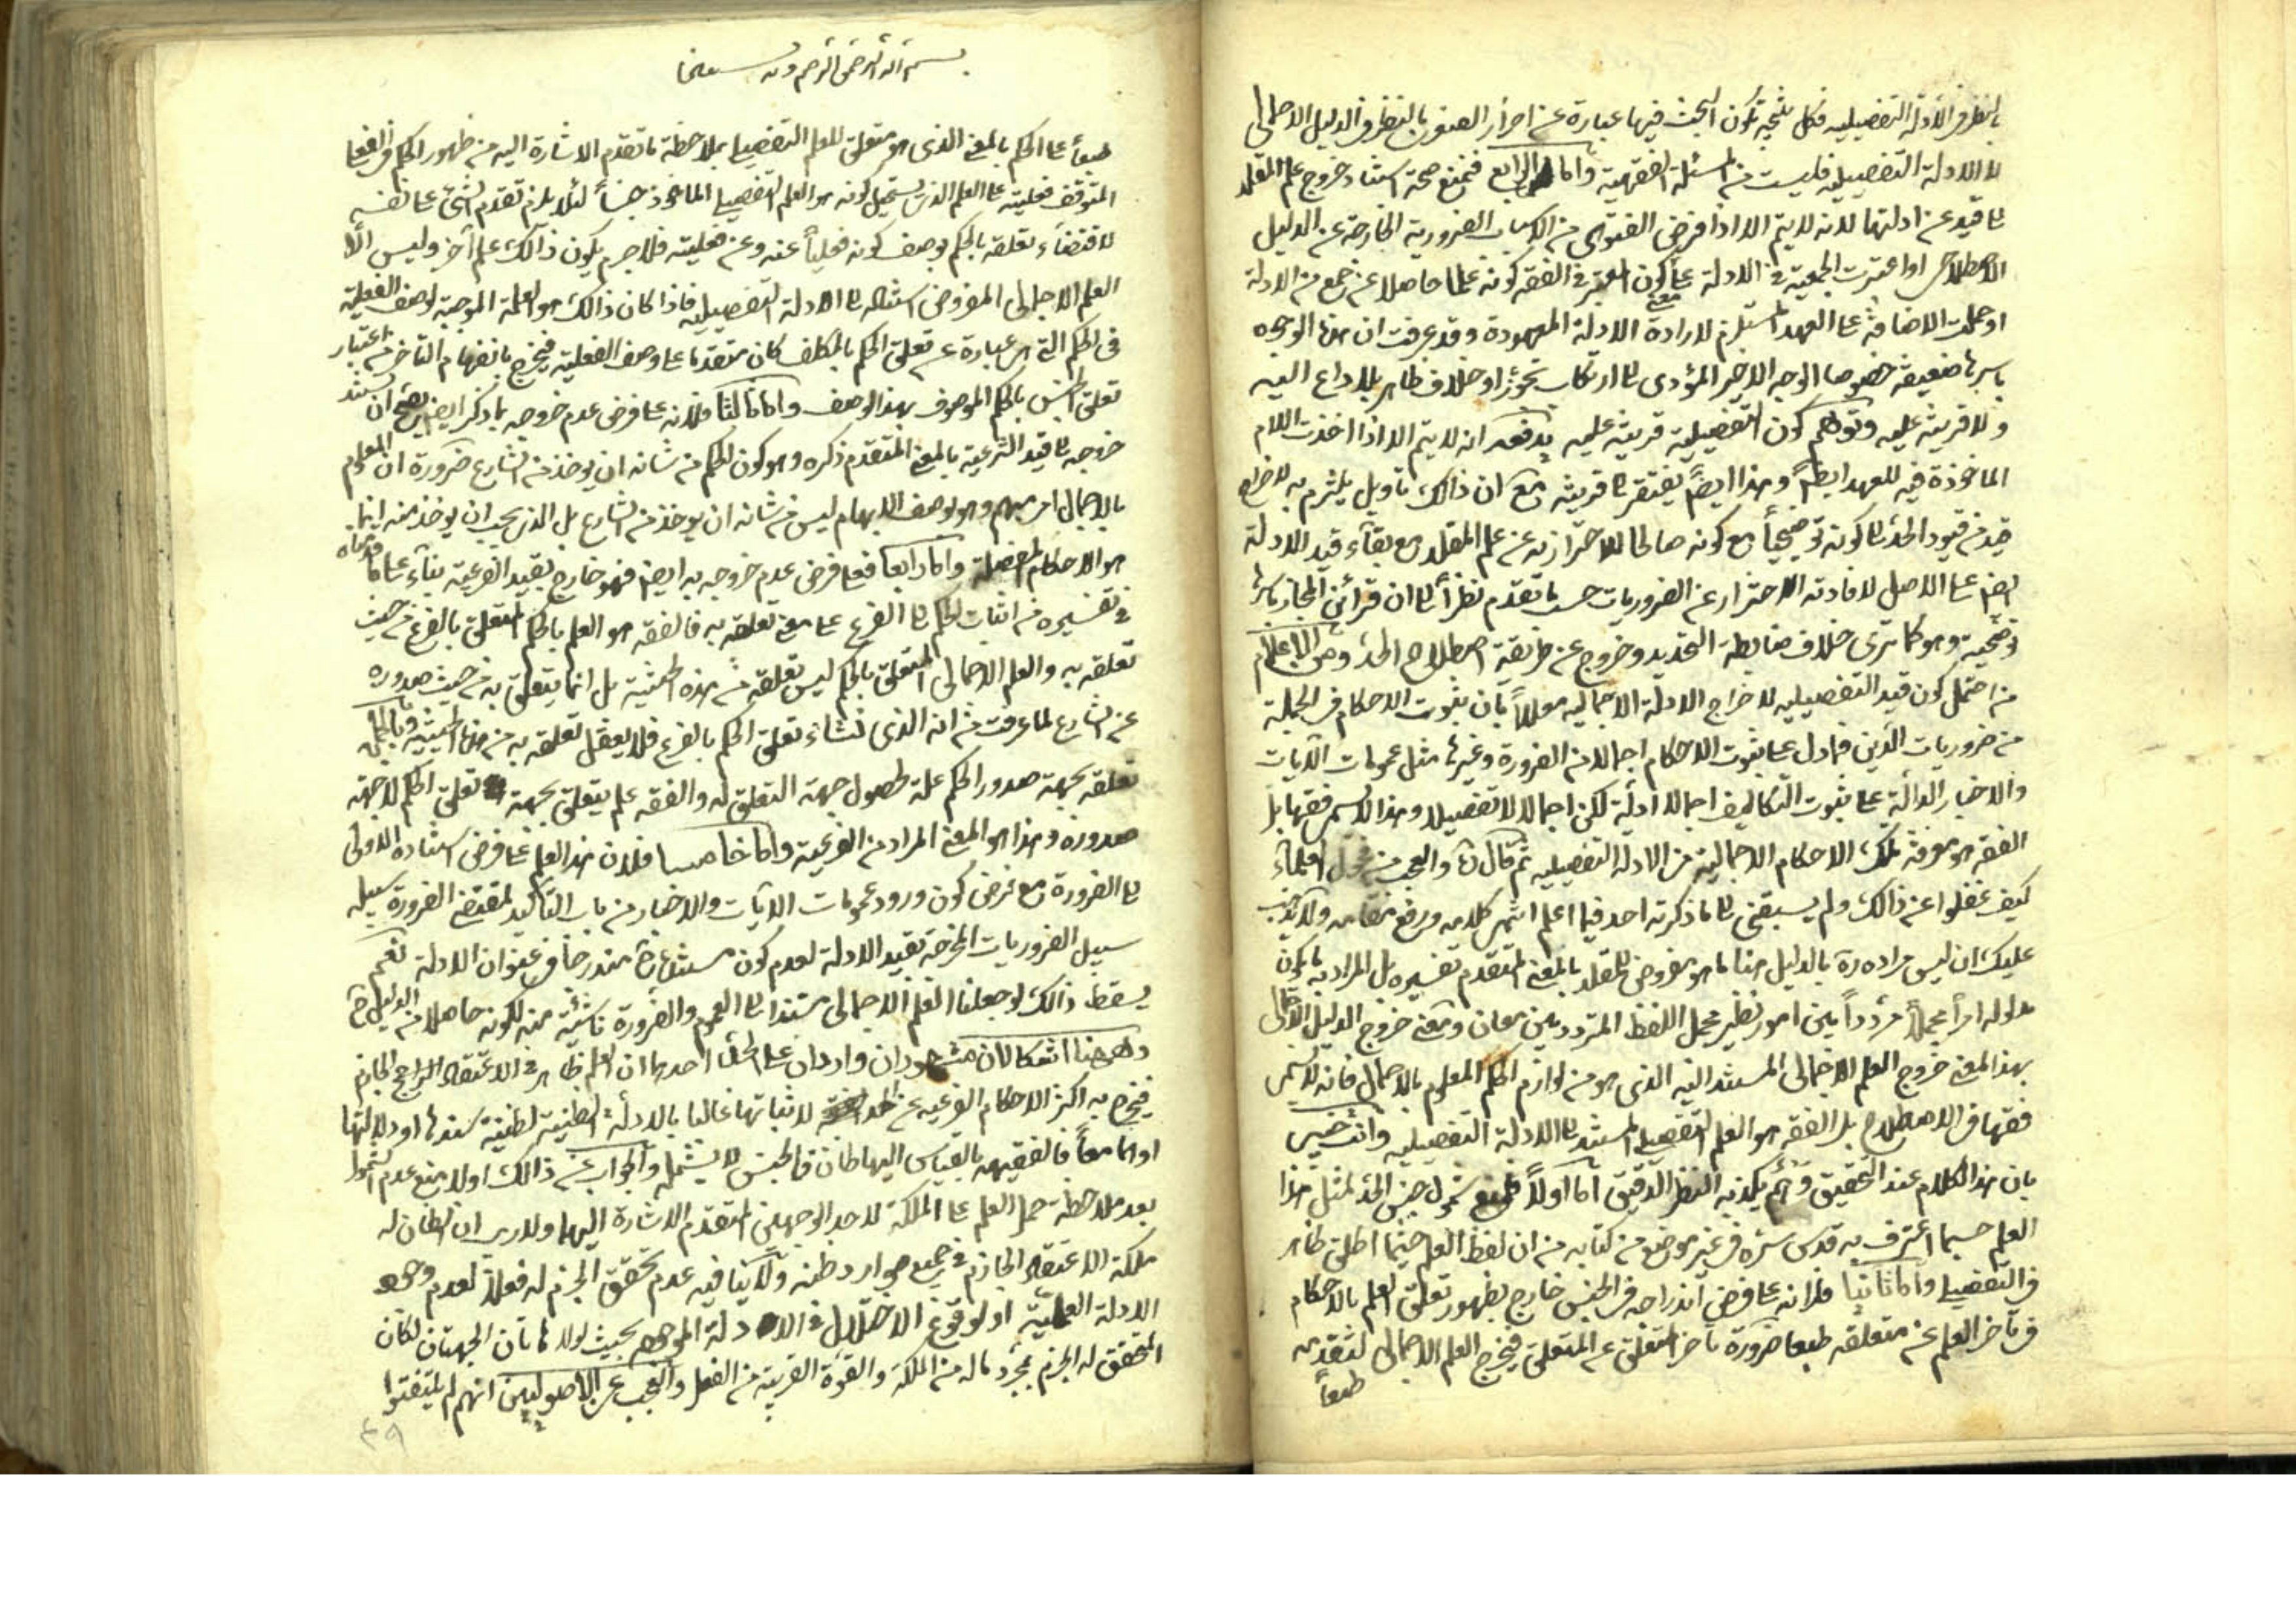 بالنظر في الأدلة التفصيلية فكل نتيجة يكون البحث فيها عبارة عن احراز الصغرى بالنظر في الدليل الاجمالى
لا الادلة التفصيلية فليست من المسئلة الفقهية وأما الرابع فنمنع صحة استناد خروج علم المقلد
الى قيد عن ادلتها لانه لا يتم الا اذا فرض الفتوى من الضرورية الخارجة عن الدليل
الاصطلاحى او اعتبرت الجمعية فى الادلة على كون المعتبر فى الفقه كونه علما حاصلا عن جمع من الادلة
او حملت الاضافة على العهد المستلزم لارادة الادلة المعهودة وقد عرفت ان هذه الوجوه
باسرها ضعيفة خصوصا الوجه الاخير المؤدى الى ارتكاب تجوز او خلاف ظاهر بلا داع اليه
ولا قرينة عليه وتوهم كون التفصيلية قرينة عليه يدفعه انه لا يتم الا اذا اخذت اللام
الماخوذة فيه للعهد ايضا وهذا ايضا يفتقر الى قرينة مع ان ذلك تاويل يلتزم به لاخراج
قيد من قيود الحد الى كونه توضيحيا مع كونه صالحا للاحتراز به عن علم المقلد مع بقاء قيد الادلة
ايضا على الاصل لافادته الاحتراز عن الضروريات حسب ما تقدم نظرا الى ان قرائن المجاز باسرها
توضيحية وهو كما ترى خلاف ضابطة التحديد وخروج عن طريقة اصطلاح الحد ومن الاعلام
من احتمل كون قيد التفصيلية لاخراج الادلة الاجمالية معللا بان ثبوت الاحكام فى الجملة
من ضروريات الدين فما دل على ثبوت الاحكام اجمالا من الضرورة وغيرها مثل عمومات الآيات
والاخبار الدالة على ثبوت التكاليف اجمالا ادلة لكن اجمالا لا تفصيلا وهذا لا يسمى فقها بل
الفقه هو معرفة تلك الاحكام الاجمالية من الادلة التفصيلية ثم قال والعجب من فحول العلماء
كيف غفلوا عن ذلك ولم يسبقنى الى ما ذكرته احد فيما اعلم انتهى كلامه ورفع مقامه ولا يذهب
عليك ان ليس مراده ره بالدليل هنا ما هو مفروض للمقلد بالمعنى المتقدم تفسيره بل المراد به ما يكون
مدلوله امرا مجملا مرددا بين امور نظير مجمل اللفظ المتردد بين معان ومعنى خروج الدليل الاجمالى
بهذا المعنى خروج العلم الاجمالى المستند اليه الذى هو من لوازم الحكم المعلوم بالاجمال فانه لا يسمى
فقها فى الاصطلاح بل الفقه هو العلم التفصيلى المستند الى الادلة التفصيلية وانت خبير
بان هذا الكلام عند التحقيق وهم يكذبه النظر الدقيق اما اولا فلمنع شمول جنس الحد لمثل هذا
العلم حسبما اعترف به قدس سره فى غير موضع من كتابه من ان لفظ العلم حيثما اطلق ظاهر
فى التفصيلى واما ثانيا فلانه على فرض اندراجه فى الجنس خارج بظهور تعلق العلم بالاحكام
فى تاخر العلم عن متعلقه طبعا ضرورة تاخر المتعلق عن المتعلق فيخرج العلم الاجمالى لتقدمه
طبعا
بسم الله الرحمن الرحيم وبه نستعين
طبعا على الحكم بالمعنى الذى هو متعلق للعلم التفصيلى بملاحظة ما تقدم الاشارة اليه من ظهور الحكم فى الفعلى
المتوقف فعليته على العلم الذى يستحيل كونه هو العلم التفصيلى الماخوذ جنسا لئلا يلزم تقدم الشئ على نفسه
لاقتضاء تعلقه بالحكم بوصف كونه فعليا عنه وعن فعليته فلا جرم يكون ذلك علم آخر وليس الا
العلم الاجمالى المفروض استناده الى الادلة التفصيلية فاذا كان ذلك هو العلة الموجبة لوصف الفعلية
فى الحكم التى هى عبارة عن تعلق الحكم بالمكلف كان متقدما على وصف الفعلية فيخرج بانفهام التاخر من اعتبار
تعلق الجنس بالحكم الموصوف بهذا الوصف واما ثالثا فلانه على فرض عدم خروجه بما ذكر ايضا يصح ان يستند
خروجه الى قيد الشرعية بالمعنى المتقدم ذكره وهو كون الحكم من شانه ان يوخذ من الشارع ضرورة ان المعلوم
بالاجمال امر مبهم وهو بوصف الابهام ليس من شانه ان يوخذ من الشارع بل الذى يجب ان يوخذ منه انما
هو الاحكام المفصلة واما رابعا فعلى فرض عدم خروجه به ايضا فهو خارج بقيد الفرعية بناء على ما قدمناه
فى تفسيره من انتساب الحكم الى الفرع على معنى تعلقه به فالفقه هو العلم بالحكم المتعلق بالفرع من حيث
تعلقه به والعلم الاجمالى المتعلق بالحكم ليس تعلقه من هذه الحيثية بل انما يتعلق به من حيث صدوره
عن الشارع لما عرفت من انه الذى نشاء تعلق الحكم بالفرع فلا يعقل تعلقه به من هذه الحيثية وبالجملة
تعلقه بجهة صدور الحكم علة لحصول جهة التعلق له والفقه علم يتعلق بجهة تعلق الحكم لا جهة
صدوره وهذا هو المعنى المراد من الفرعية واما خامسا فلان هذا العلم على فرض استناده الاولى
الى الضرورة مع فرض كون ورود عمومات الآيات والاخبار من باب التاكيد لمقتضى الضرورة سبيله
سبيل الضروريات المخرجة بقيد الادلة لعدم كون مستندها ح مندرجا فى عنوان الادلة نعم
يسقط ذلك لو جعلنا العلم الاجمالى مستندا الى العموم والضرورة ناشئة منه لكونه حاصلا من الدليل ح
وههنا اشكالان مشهوران واردان على الحد احدهما ان العلم ظاهر فى الاعتقاد الراجح الجازم
فيخرج به اكثر الاحكام الفرعية عن الحد لابتنائها غالبا بالادلة الظنية لظنية سندها او دلالتها
او هما معا فالفقيه بالقياس اليها ظان فالجنس لا يشمله والجواب عن ذلك اولا منع عدم الشمول
بعد ملاحظة حمل العلم على الملكة لاحد الوجهين المتقدم الاشارة اليهما ولا ريب ان الظان له
ملكة الاعتقاد الجازم فى جميع موارد ظنه ولا ينافيه عدم تحقق الجزم له فعلا لعدم وجود
الادلة العلمية او لوقوع الاختلال فى الادلة الموجودة بحيث لولا هاتان الجهتان لكان
المتحقق له الجزم بمجرد ماله من الملكة والقوة القريبة من الفعل والعجب عن الاصوليين انهم لم يلتفتوا
٤٩